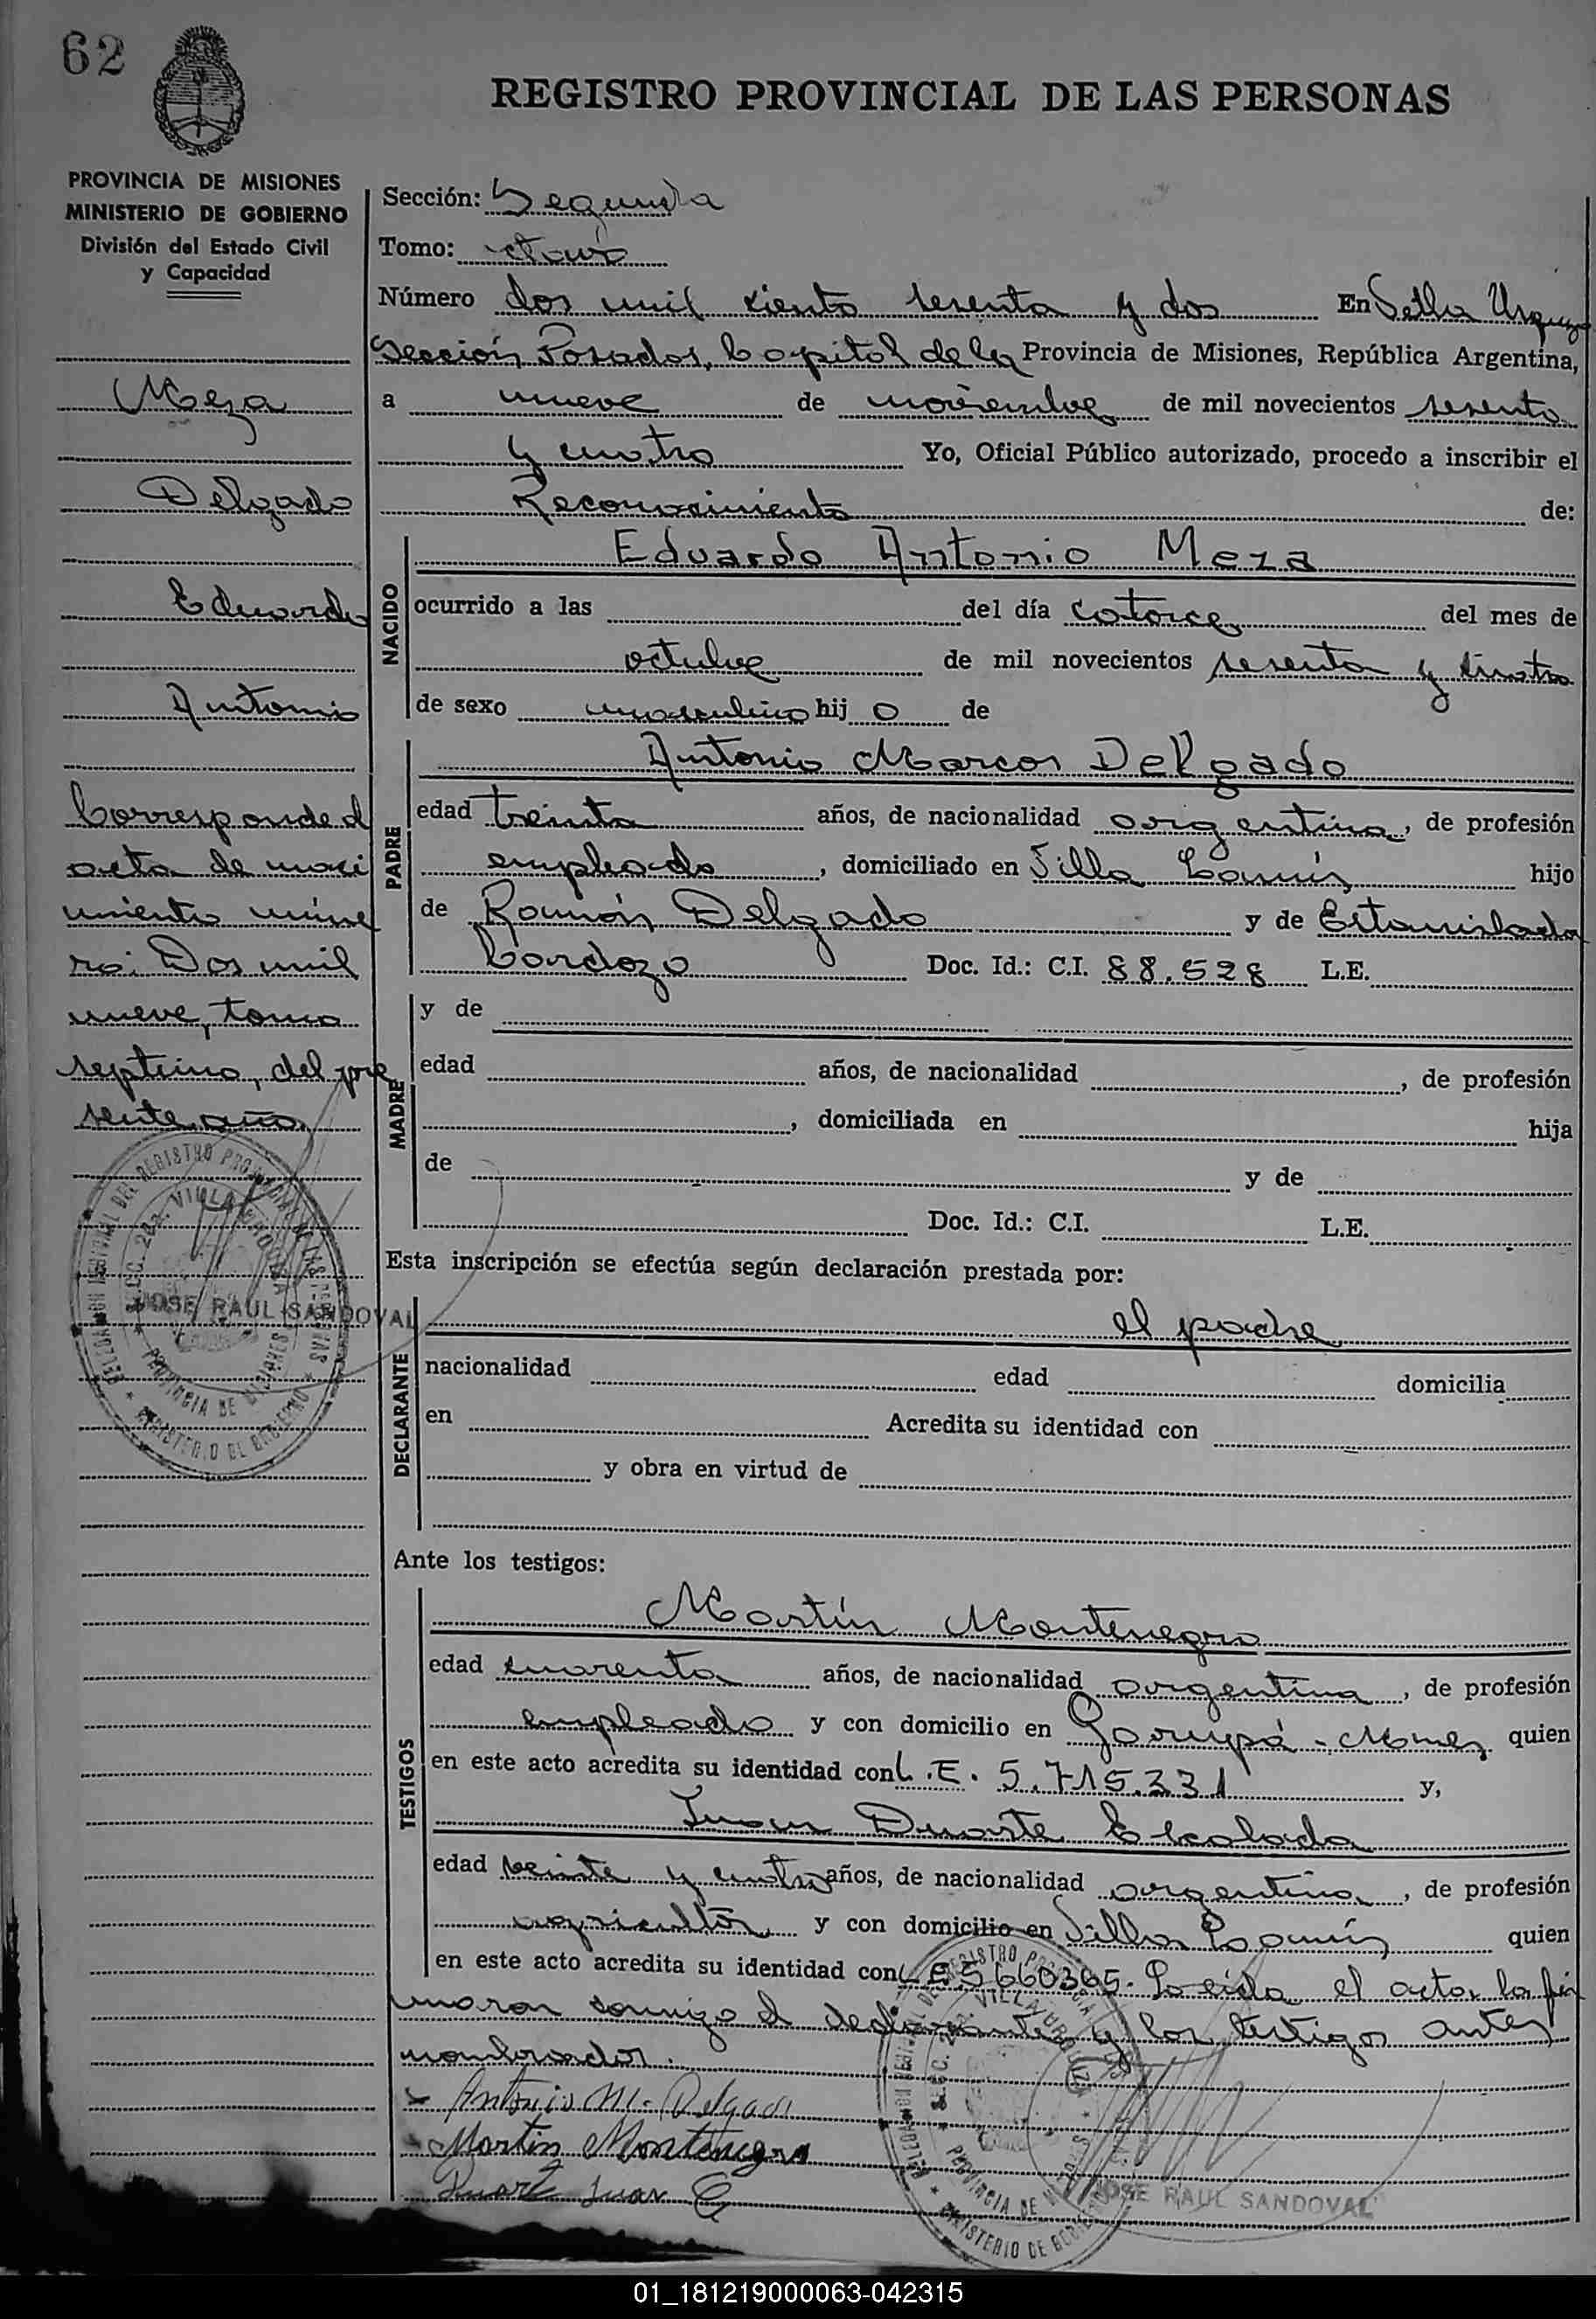 62
REGISTRO PROVINCIAL DE LAS PERSONAS
PROVINCIA DE MISIONES
MINISTERIO DE GOBIERNO
División del Estado Civil
y Capacidad
Meza
Delgado
Eduardo
Antonio
Corresponde al
acta de naci
miento núme
ro: Dos mil
nueve, tomo
septimo, del pre
sente año.
DELEGACION REGIONAL DEL REGISTRO PROVINCIAL DE LAS PERSONAS
SECC. 2da. VILLA URQUIZA
PROVINCIA DE MISIONES
MINISTERIO DE GOBIERNO
JOSE RAUL SANDOVAL
Sección: Segunda
Tomo: octavo
Número dos mil ciento sesenta y dos En Villa Urquiza
Sección Posadas, Capital de la Provincia de Misiones, República Argentina,
a nueve de noviembre de mil novecientos sesenta
y cuatro Yo, Oficial Público autorizado, procedo a inscribir el
Reconocimiento de:
NACIDO
Eduardo Antonio Meza
ocurrido a las del día catorce del mes de
octubre de mil novecientos sesenta y cuatro
de sexo masculino hij o de
PADRE
Antonio Marcos Delgado
edad treinta años, de nacionalidad argentina, de profesión
empleado, domiciliado en Villa Lanús hijo
de Ramón Delgado y de Estanislada
Cardozo Doc. Id.: C.I. 88.528 L.E.
MADRE
y de
edad años, de nacionalidad , de profesión
, domiciliada en hija
de y de
Doc. Id.: C.I. L.E.
Esta inscripción se efectúa según declaración prestada por:
DECLARANTE
el padre
nacionalidad edad domicilia
en Acredita su identidad con
y obra en virtud de
Ante los testigos:
TESTIGOS
Martín Montenegro
edad cuarenta años, de nacionalidad argentina, de profesión
empleado y con domicilio en Garupá - Mnes. quien
en este acto acredita su identidad con L.E. 5.715.331 y,
Juan Duarte Escalada
edad veinte y cuatro años, de nacionalidad argentina, de profesión
agricultor y con domicilio en Villa Lanús quien
en este acto acredita su identidad con L E 5660365. Leída el acta, la fir
maron conmigo el declarante y los testigos antes
nombrados.
Antonio M. Delgado
Martin Montenegro
Duarte Juan E
DELEGACION REGIONAL DEL REGISTRO PROVINCIAL DE LAS PERSONAS
SECC. 2da. VILLA URQUIZA
PROVINCIA DE MISIONES
MINISTERIO DE GOBIERNO
JOSE RAUL SANDOVAL
01_181219000063-042315